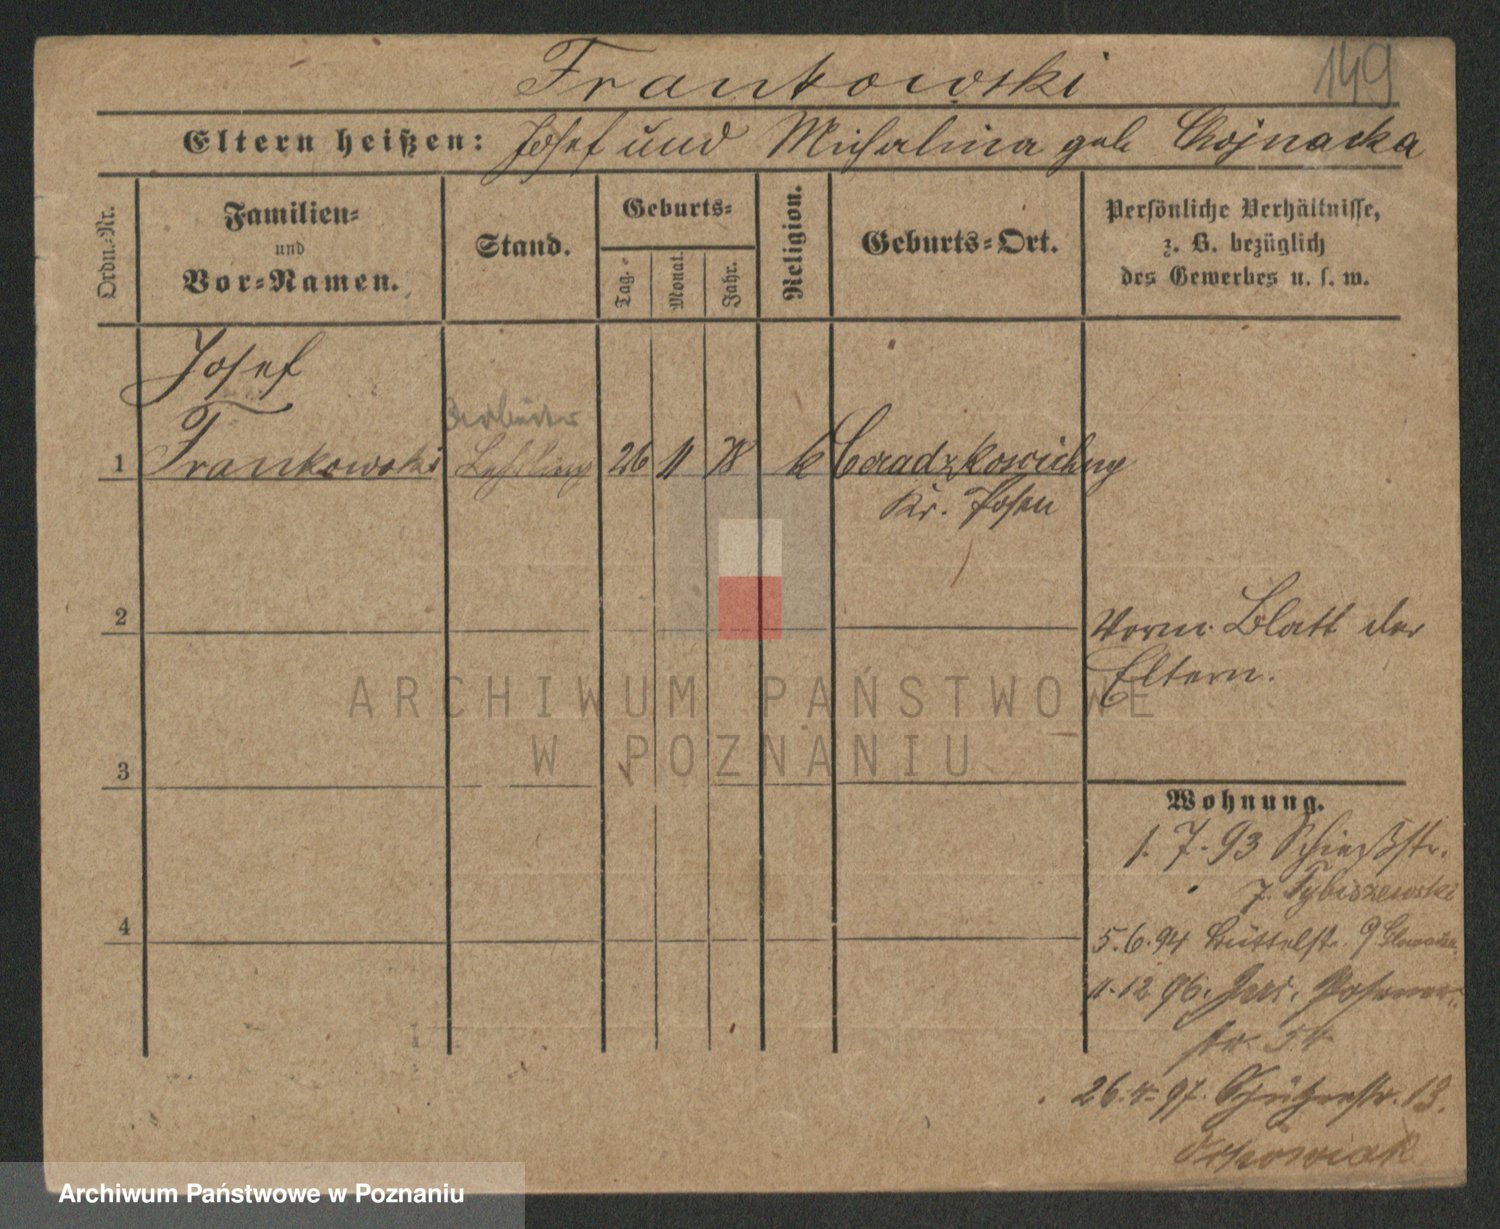 Frankowski
149
Eltern heißen: Josef und Michalina geb Chojnacka
Ordn.-Nr.
Familien-
und
Vor-Namen.
Stand.
Geburts-
Tag.
Monat.
Jahr.
Religion.
Geburts-Ort.
Persönliche Verhältnisse,
z. B. bezüglich
des Gewerbes u. s. w.
Josef
Arbeiter
1 Frankowski Lehrling 26 11 78 k
Kr. Posen
2
Vorm. Blatt der
Eltern.
3
Wohnung.
1. 7. 93 Schießstr.
7. Tybiszewski
4
5. 6. 94 Büttelstr. 9
11. 12 96. Jers. Posener
str. 54
26. 4. 97. Schützenstr. 13.
ARCHIWUM PAŃSTWOWE
W POZNANIU
Archiwum Państwowe w Poznaniu